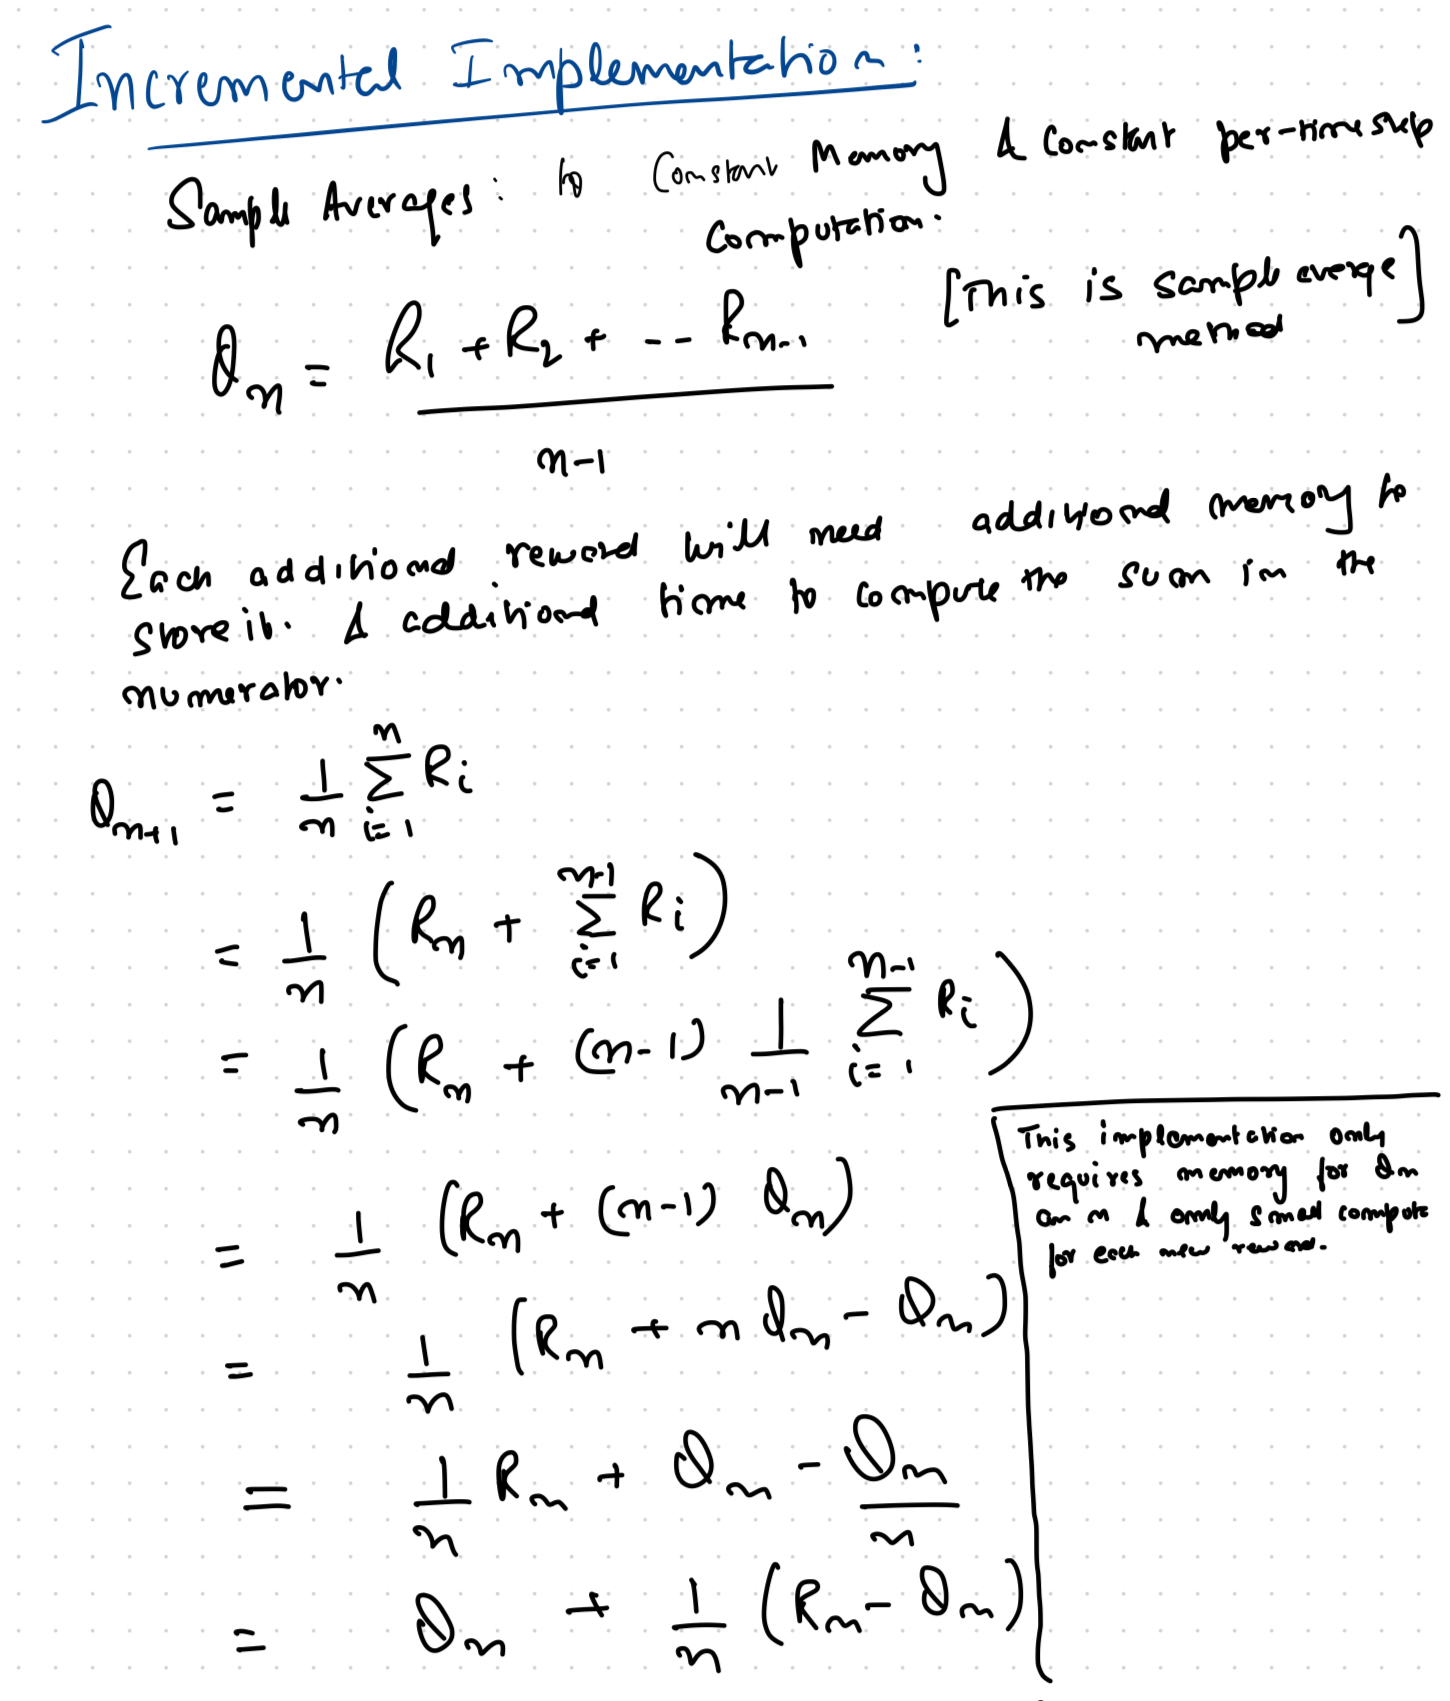 Incremental Implementation:
Sample Averages: to Constant Memory & Constant per-timestep
Computation.
[This is sample averge]
method
Qn = R1 + R2 + -- Rn-1
n-1
Each additional reward will need additional memory to
store it. & additional time to compute the sum in the
numerator.
Qn+1 = 1/n Σ_{i=1}^{n} Ri
= 1/n (Rn + Σ_{i=1}^{n-1} Ri)
= 1/n (Rn + (n-1) 1/n-1 Σ_{i=1}^{n-1} Ri)
= 1/n (Rn + (n-1) Qn)
= 1/n (Rn + n Qn - Qn)
= 1/n Rn + Qn - Qn/n
= Qn + 1/n (Rn - Qn)
This implementation only
requires memory for Qn
an n & only small compute
for each new reward.